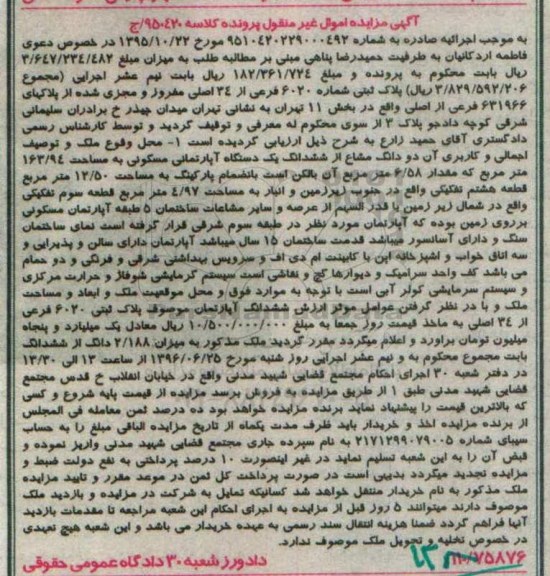 آگهی مزایده اموال غیر منقول پرونده کلاسه ۹۵۰۴۲۰/ج
به موجب اجرائیه صادره به شماره ۹۵۱۰۴۲۰۲۲۹۰۰۰۴۹۲ مورخ ۱۳۹۵/۱۰/۲۲ در خصوص دعوی
فاطمه اردکانیان به طرفیت حمیدرضا پناهی مبنی بر مطالبه طلب به میزان مبلغ ۳/۶۴۷/۲۳۴/۴۸۲
ریال بابت محکوم به پرونده و مبلغ ۱۸۲/۳۶۱/۷۲۴ ریال بابت نیم عشر اجرایی (مجموع
۳/۸۲۹/۵۹۲/۲۰۶ ریال) پلاک ثبتی شماره ۶۰۲۰ فرعی از ۳۴ اصلی مفروز و مجزی شده از پلاکهای
۶۳۱۹۶۶ فرعی از اصلی واقع در بخش ۱۱ تهران به نشانی تهران میدان چیذر خ برادران سلیمانی
شرقی کوچه دادجو پلاک ۳ از سوی محکوم له معرفی و توقیف گردید و توسط کارشناس رسمی
دادگستری آقای حمید زارع به شرح ذیل ارزیابی گردیده است ۱- محل وقوع ملک و توصیف
اجمالی و کاربری آن دو دانگ مشاع از ششدانگ یک دستگاه آپارتمانی مسکونی به مساحت ۱۶۳/۹۴
متر مربع که مقدار ۶/۵۸ متر مربع آن بالکن است بانضمام پارکینگ به مساحت ۱۲/۵۰ متر مربع
قطعه هشتم تفکیکی واقع در جنوب زیرزمین و انبار به مساحت ۴/۹۷ متر مربع قطعه سوم تفکیکی
واقع در شمال زیر زمین با قدر السهم از عرصه و سایر مشاعات ساختمان ۵ طبقه آپارتمان مسکونی
برروی زمین بوده که آپارتمان مورد نظر در طبقه سوم شرقی قرار گرفته است نمای ساختمان
سنگ و دارای آسانسور میباشد قدمت ساختمان ۱۵ سال میباشد آپارتمان دارای سالن و پذیرایی و
سه اتاق خواب و آشپزخانه اپن با کابینت ام دی اف و سرویس بهداشتی شرقی و فرنگی و دو حمام
می باشد کف واحد سرامیک و دیوارها گچ و نقاشی است سیستم گرمایشی شوفاژ و حرارت مرکزی
و سیستم سرمایشی کولر آبی است با توجه به موارد فوق و محل موقعیت ملک و ابعاد و مساحت
ملک و با در نظر گرفتن عوامل موثر ارزش ششدانگ آپارتمان موصوف پلاک ثبتی ۶۰۲۰ فرعی
از ۳۴ اصلی به ماخذ قیمت روز جمعا به مبلغ ۱۰/۵۰۰/۰۰۰/۰۰۰ ریال معادل یک میلیارد و پنجاه
میلیون تومان براورد و اعلام میگردد مقرر گردید ملک مذکور به میزان ۲/۱۸۸ دانگ از ششدانگ
بابت مجموع محکوم به و نیم عشر اجرایی روز شنبه مورخ ۱۳۹۶/۰۶/۲۵ از ساعت ۱۳ الی ۱۳/۳۰
در دفتر شعبه ۳۰ اجرای احکام مجتمع قضایی شهید مدنی واقع در خیابان انقلاب خ قدس مجتمع
قضایی شهید مدنی طبق ۱ از طریق مزایده به فروش برسد مزایده از قیمت پایه شروع و کسی
که بالاترین قیمت را پیشنهاد نماید برنده مزایده خواهد بود ده درصد ثمن معامله فی المجلس
از برنده مزایده اخذ و خریدار باید ظرف مدت یکماه از تاریخ مزایده الباقی مبلغ را به حساب
سیبای شماره ۲۱۷۱۲۹۹۰۷۹۰۰۵ به نام سپرده جاری مجتمع قضایی شهید مدنی واریز نموده و
قبض آن را به این شعبه تسلیم نماید در غیر اینصورت ۱۰ درصد پرداختی به نفع دولت ضبط و
مزایده تجدید میگردد بدیهی است در صورت پرداخت کل ثمن در موعد مقرر و تایید مزایده
ملک مذکور به نام خریدار منتقل خواهد شد کسانیکه تمایل به شرکت در مزایده و بازدید ملک
موصوف دارند میتوانند ۵ روز قبل از مزایده به اجرای احکام این شعبه مراجعه تا مقدمات بازدید
آنها فراهم گردد ضمنا هزینه انتقال سند رسمی به عهده خریدار می باشد و این شعبه هیچ تعهدی
در خصوص تخلیه و تحویل ملک موصوف ندارد.
۱۱۰/۷۵۸۷۶ دادورز شعبه ۳۰ دادگاه عمومی حقوقی